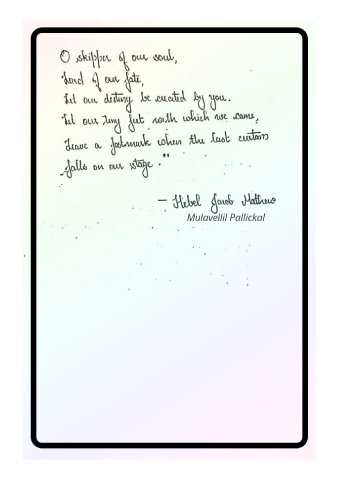 O skipper of our soul,
Lord of our fate,
Let our destiny be created by you.
Let our tiny feet with which we came,
Leave a footmark when the last curtain
falls on our stage."
– Hebel Jacob Mathew
Mulavellil Pallickal